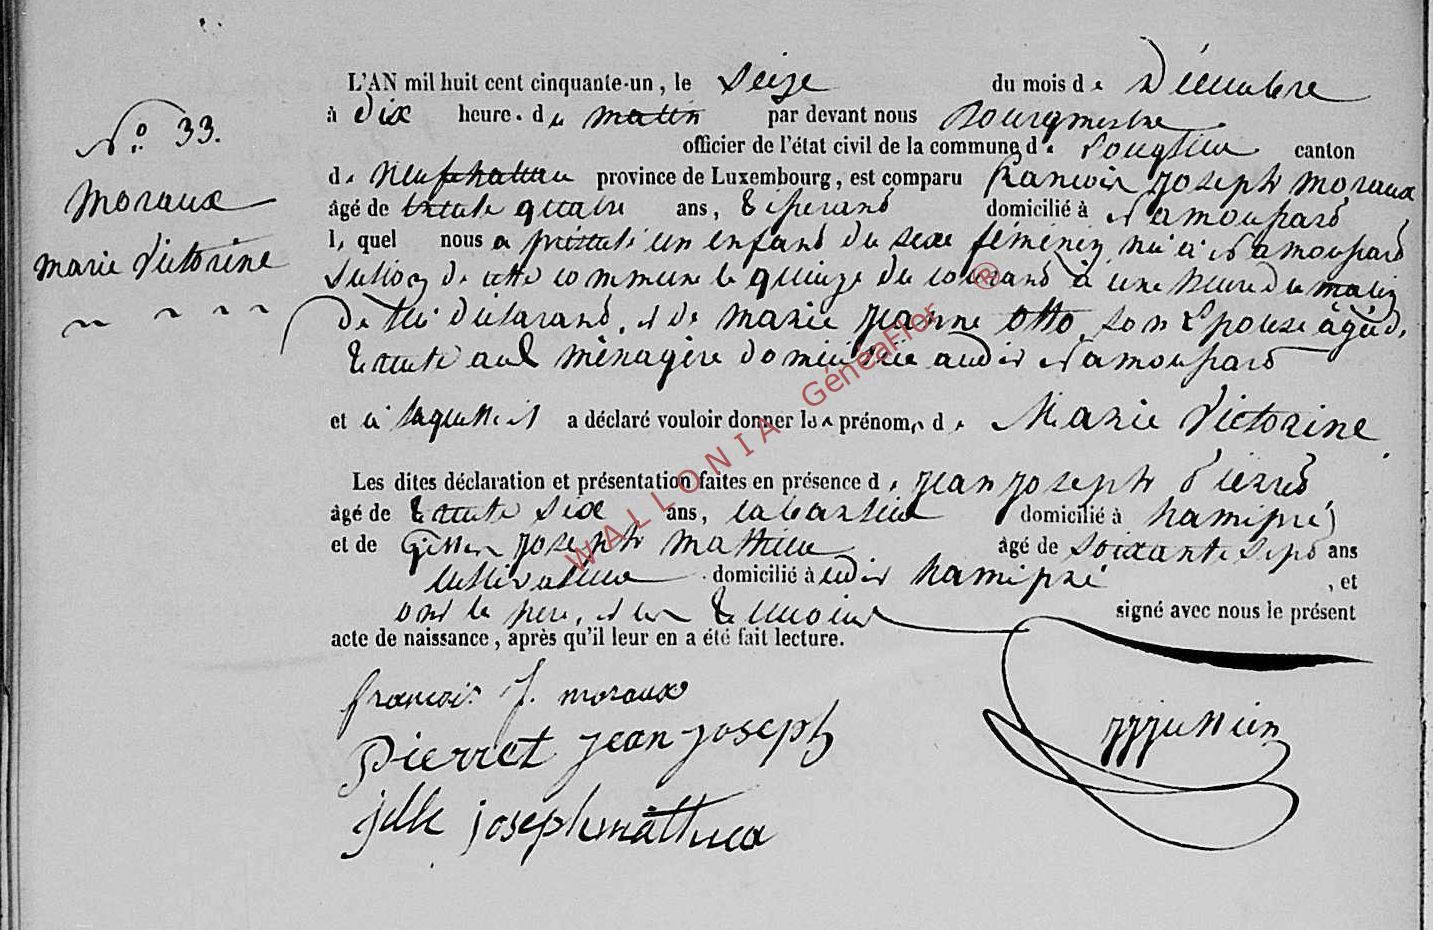 N.º 33.
Moraux
Marie Victorine
L'AN mil huit cent cinquante-un, le Seize du mois de Décembre
à dix heures du matin par devant nous Bourgmestre
officier de l'état civil de la commune de Longlier canton
de Neufchateau province de Luxembourg, est comparu françois Joseph Moraux
âgé de trente quatre ans, domicilié à Namoussard
lequel nous a présenté un enfant du sexe féminin né à Namoussard
Section de cette commune le quinze du courant à une heure du matin
de lui déclarant, et de Marie Jeanne Otto, son épouse âgée de
trente ans ménagère domiciliée audit Namoussard
et à laquelle il a déclaré vouloir donner les prénoms de Marie Victorine
Les dites déclaration et présentation faites en présence de Jean Joseph Pierret
âgé de trente six ans, domicilié à hamipré
et de Joseph Mathieu âgé de soixante sept ans
cultivateur domicilié audit hamipré, et
ont le père, et les témoins signé avec nous le présent
acte de naissance, après qu'il leur en a été fait lecture.
françois J. moraux
Pierret Jean Joseph
jille joseph mathieu
WALLONIA GéneaFlor ®